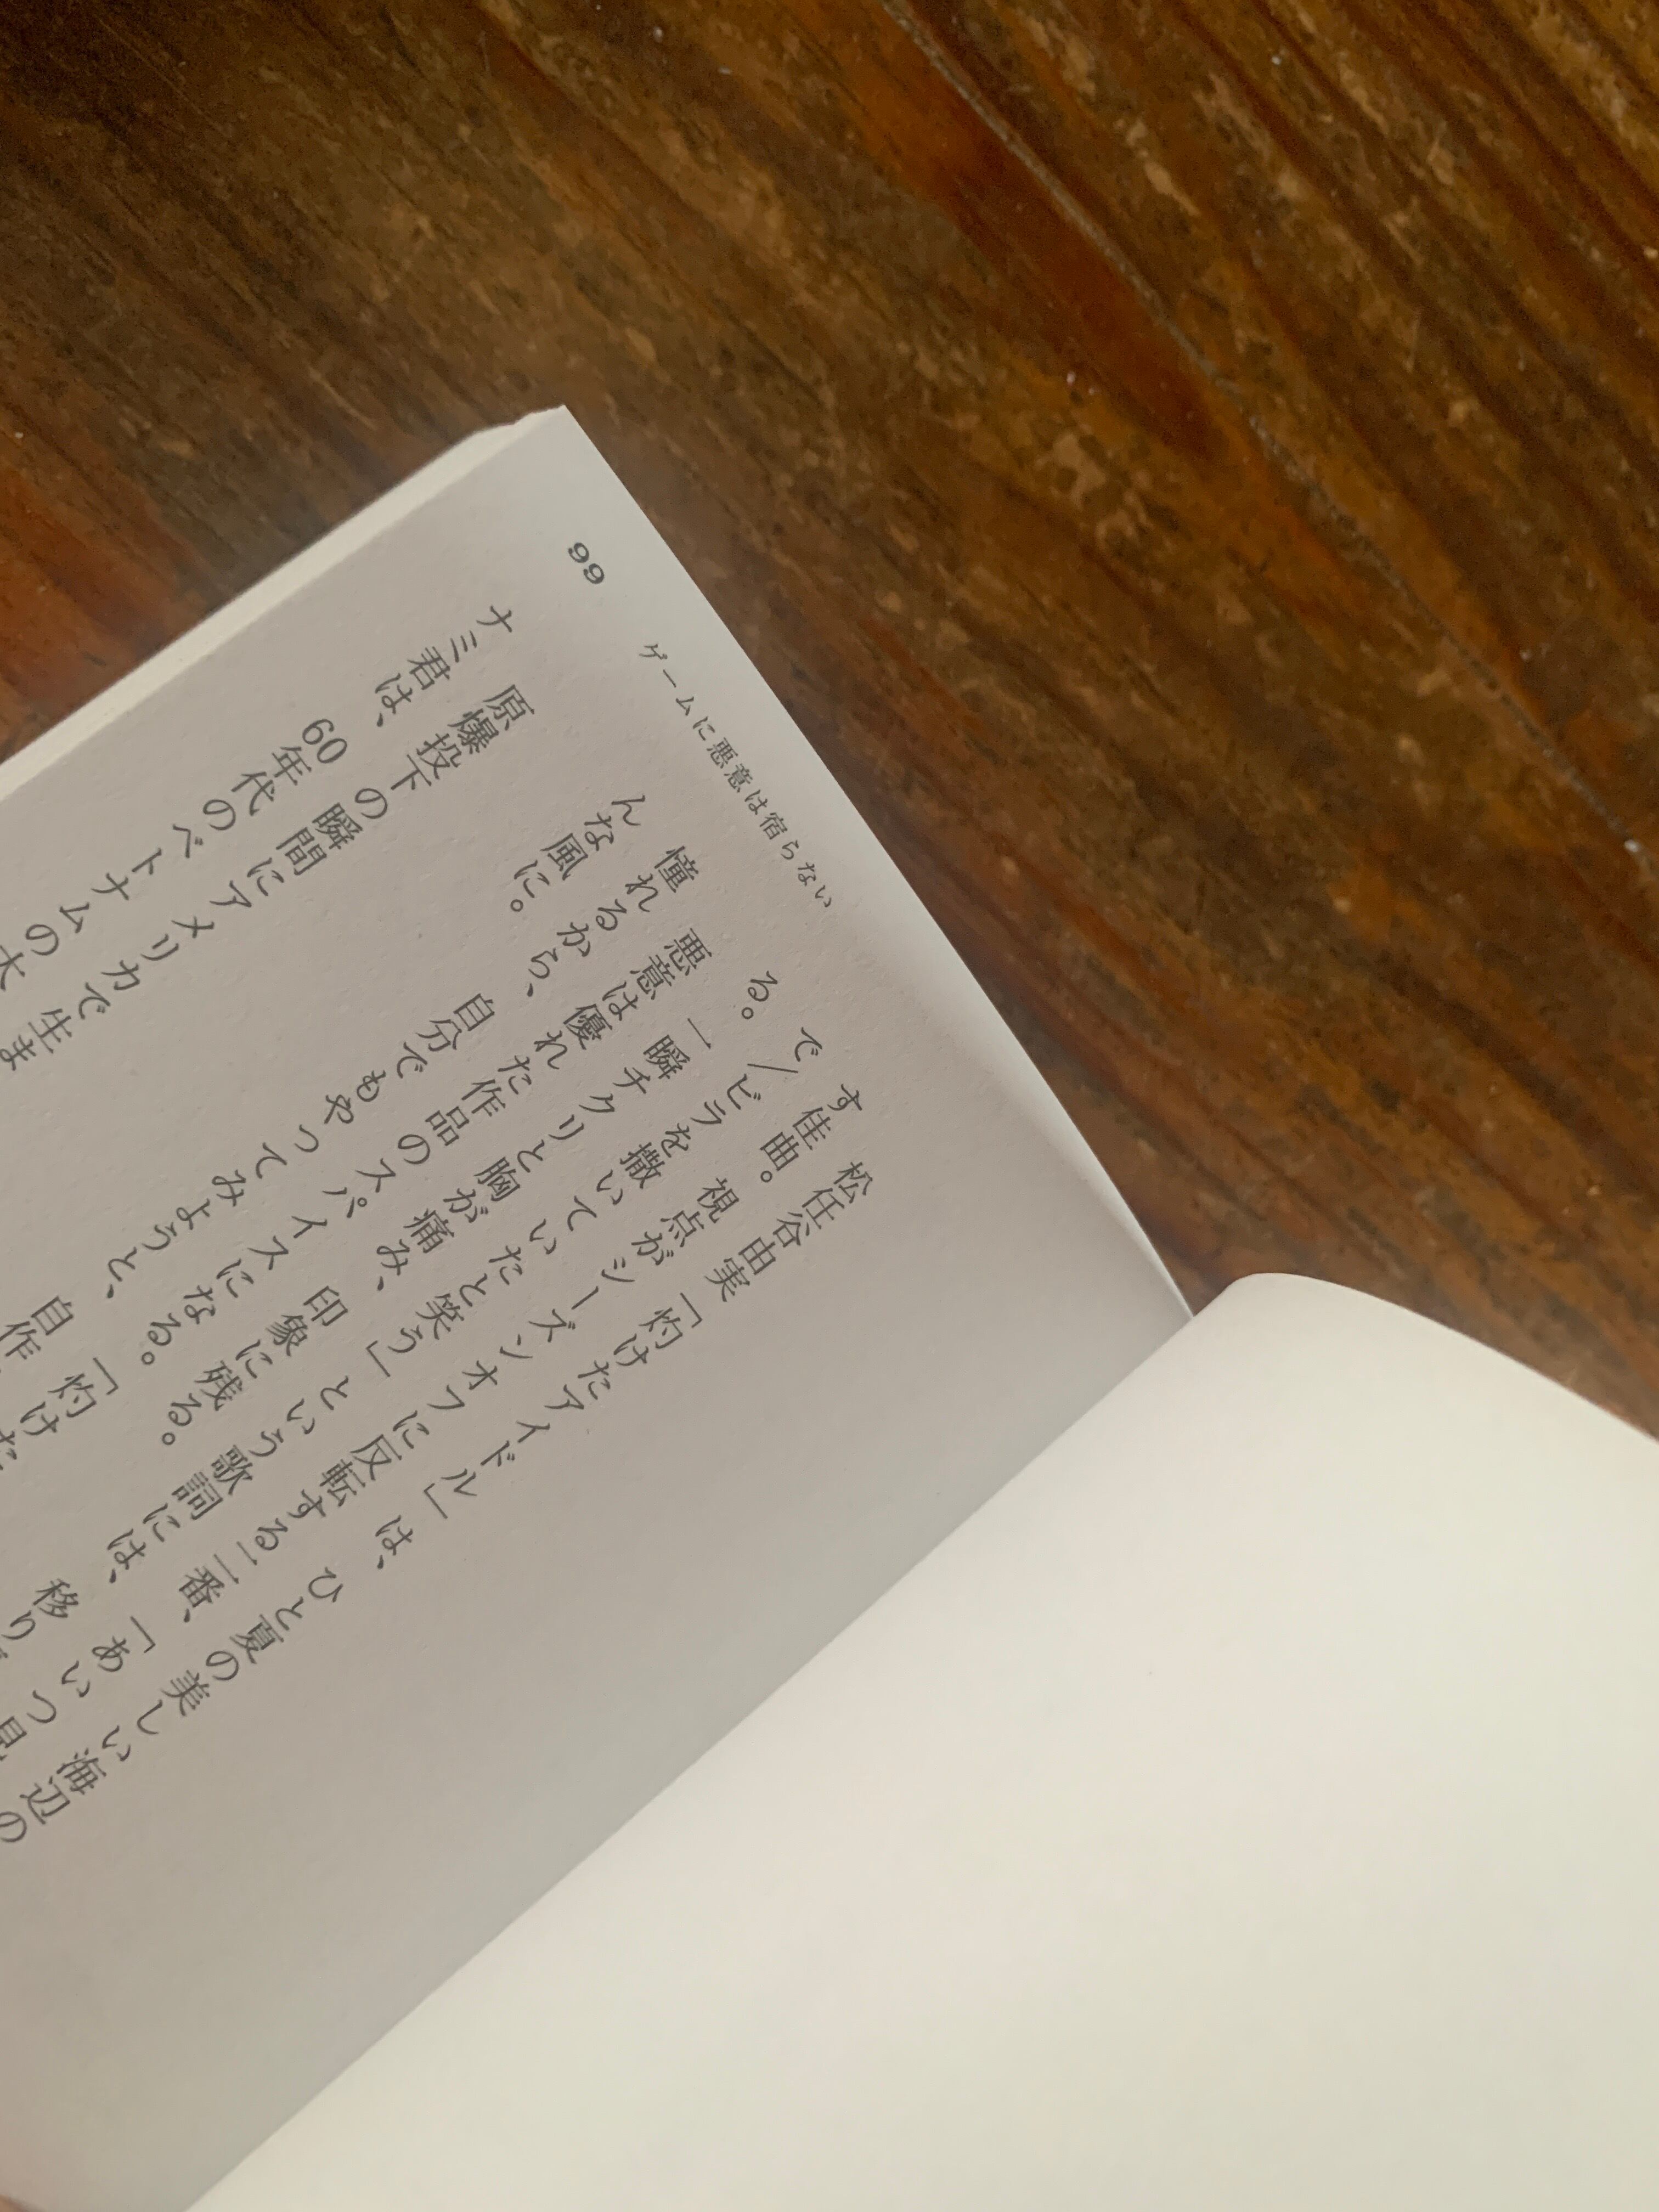 99
ゲームに悪意は宿らない
松任谷由実「灼けたアイドル」は、ひと夏の美しい海辺の
す佳曲。視点がシーズンオフに反転する二番、「あいつ
で/ビラを撒いていたと笑う」という歌詞には、移り
る。一瞬チクリと胸が痛み、印象に残る。
悪意は優れた作品のスパイスになる。「灼けた
憧れるから、自分でもやってみようと、自作
んな風に。
原爆投下の瞬間にアメリカで生ま
ナミ君は、60年代のベトナムの大